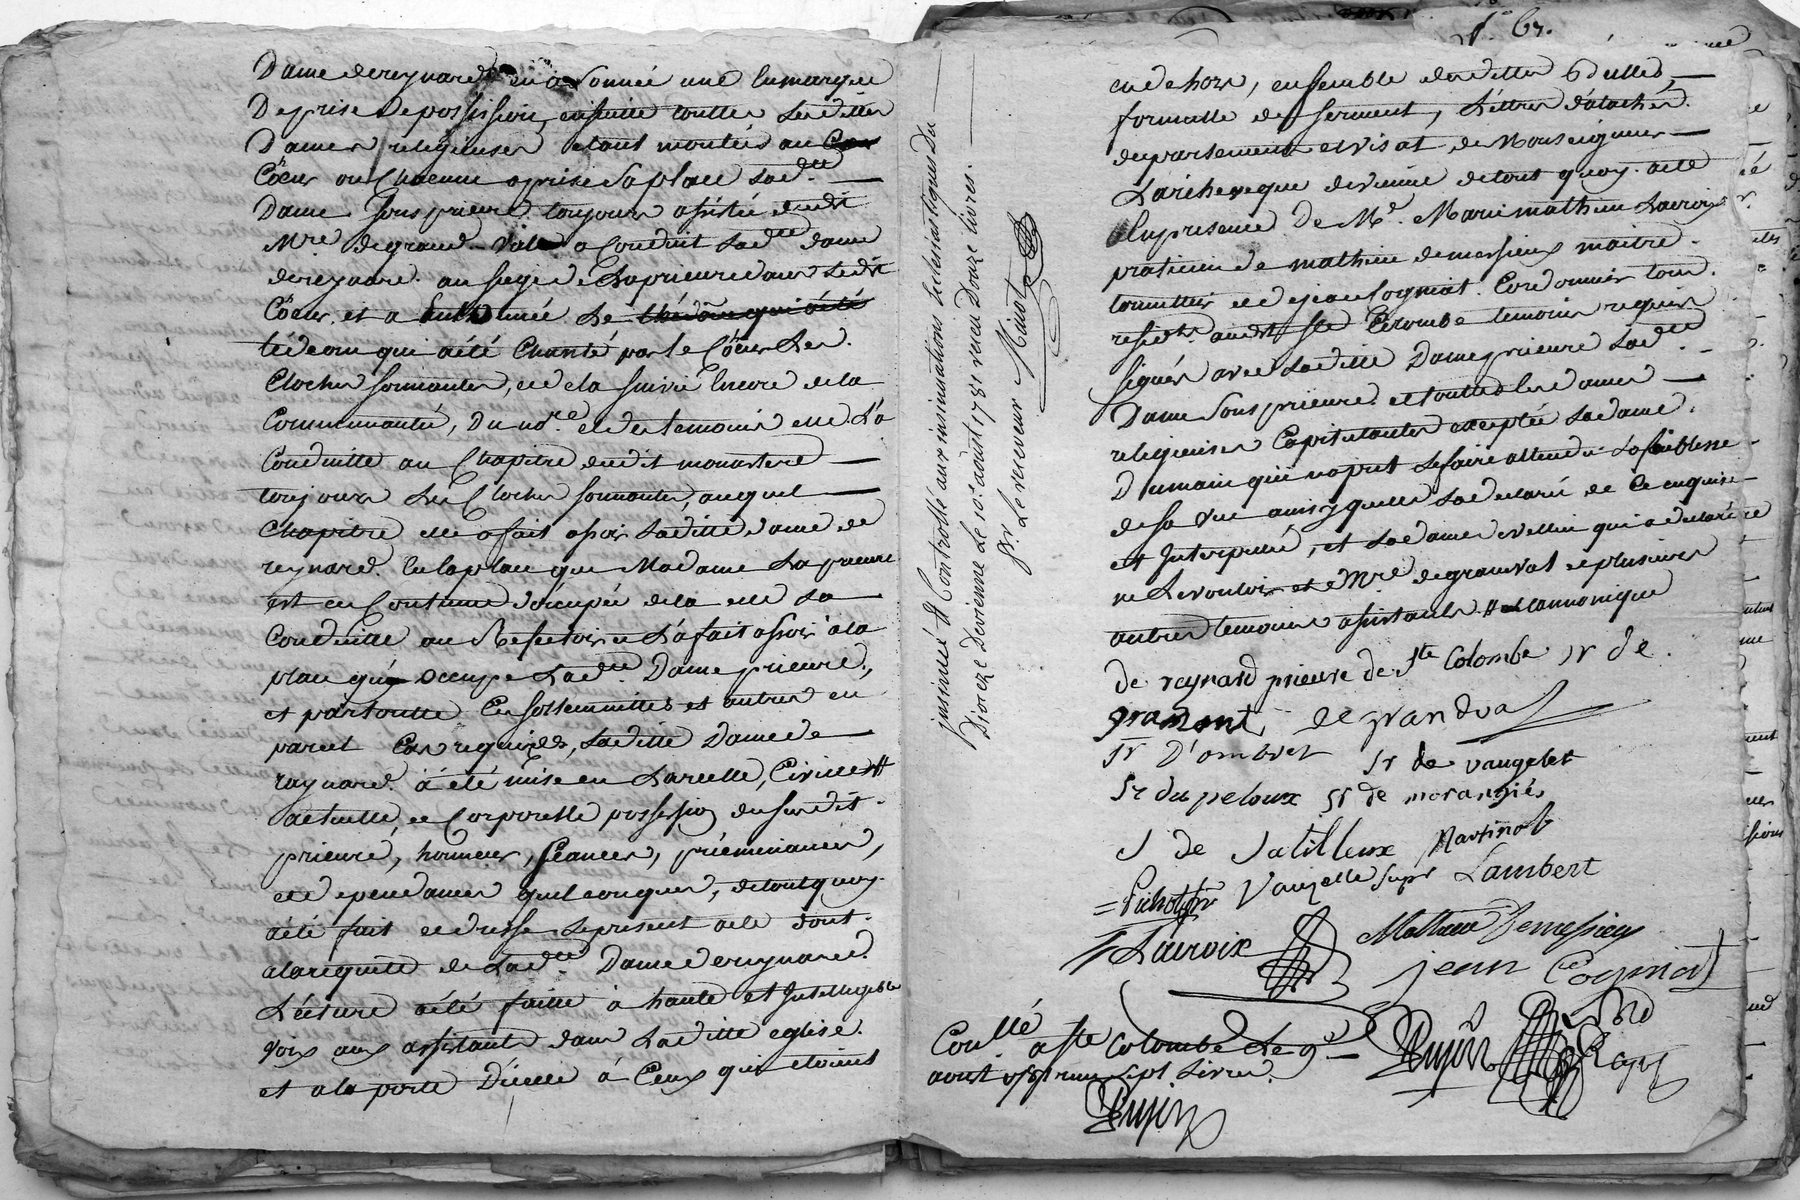 Dame de reynard en a sonnée une En marque
De prise de possission, ensuitte touttes Lesdittes
Dames religieuses etant montées au
Cöeur ou Chacune a prise sa place lad.te
Dame sous prieure toujours assistée dudit
M.re de grand val a Conduit Lad.te dame
de reynard au siege de la prieure dans ledit
Cöeur et a Entonnée Le thédome qui a été
tédeom qui a été Chanté par le Cöeur Les
Cloches sonnantes, et de la suivie Encore de la
Communauté, Du no.re et des temoins elle L'a
Conduitte au Chapitre dudit monastere
toujours Les Cloches sonnantes, auquel
Chapitre elle a fait assoir Laditte dame de
reynard En la place que Madame La prieure
est en Coutume d'occuper de la elle La
Conduitte au Refectoir et L'a fait assoir a la
place qu'y occupe Lad.te Dame prieure,
et partoutte Ces sollemnittés et autres en
pareil Cas requises, Laditte Dame de
raynard à été mise en La reelle, Civille #
actuelle et Corporelle possession du susdit
prieuré, honneurs, séances, prééminances,
et dependances quelconques, de tout quoy
a été fait et dressé Le present acte dont
a la requete de Lad.te Dame de reynard
Lécture a été faitte à haute et Intelligeble
voix aux assistants dans Laditte eglise
et a la porte D'icelle à Ceux qui etoient
insinué & Controllé aux insinuations Ecclesiastiques du
Dioceze De vienne Le 10.e aout 1781 reçu Douze livres.
pr. Le receveur Minot
en dehors, ensemble desdittes Bulles,
formulle de serment, Léttres d'atache
departement et visat, de Monseigneur
L'archeveque de vienne de tout quoy acte
En presence de M.e Marie mathieu Lacroix
praticien de mathieu demessieux maitre
tonnellier et de jean Cogniat Cordonnier tous
resid.ts audit Ste Colombe temoins requis
signés avec Laditte Dame prieure Lad.te
Dame sous prieure et touttes les dames
religieuses Capitulantes exceptée La dame
Dumain qui n'a peut Le faire attendu La foiblesse
de sa vue ainsy qu'elle La declaré de Ce enquise
et Interpellée, et La dame de vellin qui a declaré ne
ne Le vouloir et M.re de grandval et plusieurs
autres temoins assistants # et Cannonique
de reynard prieure de Ste Colombe sr de
gramont de grandval
sr D'ombret sr de vaugelet
sr du peloux sr de morangiés
s de satilleux Martinot
Vauzelle supr Lambert
Lacroix Mathieu Demessieux
jean Cogniat
Coullé a Ste Colombe Le 9.e
aout 1781 reçu sept Livres
Pujon
Pujon